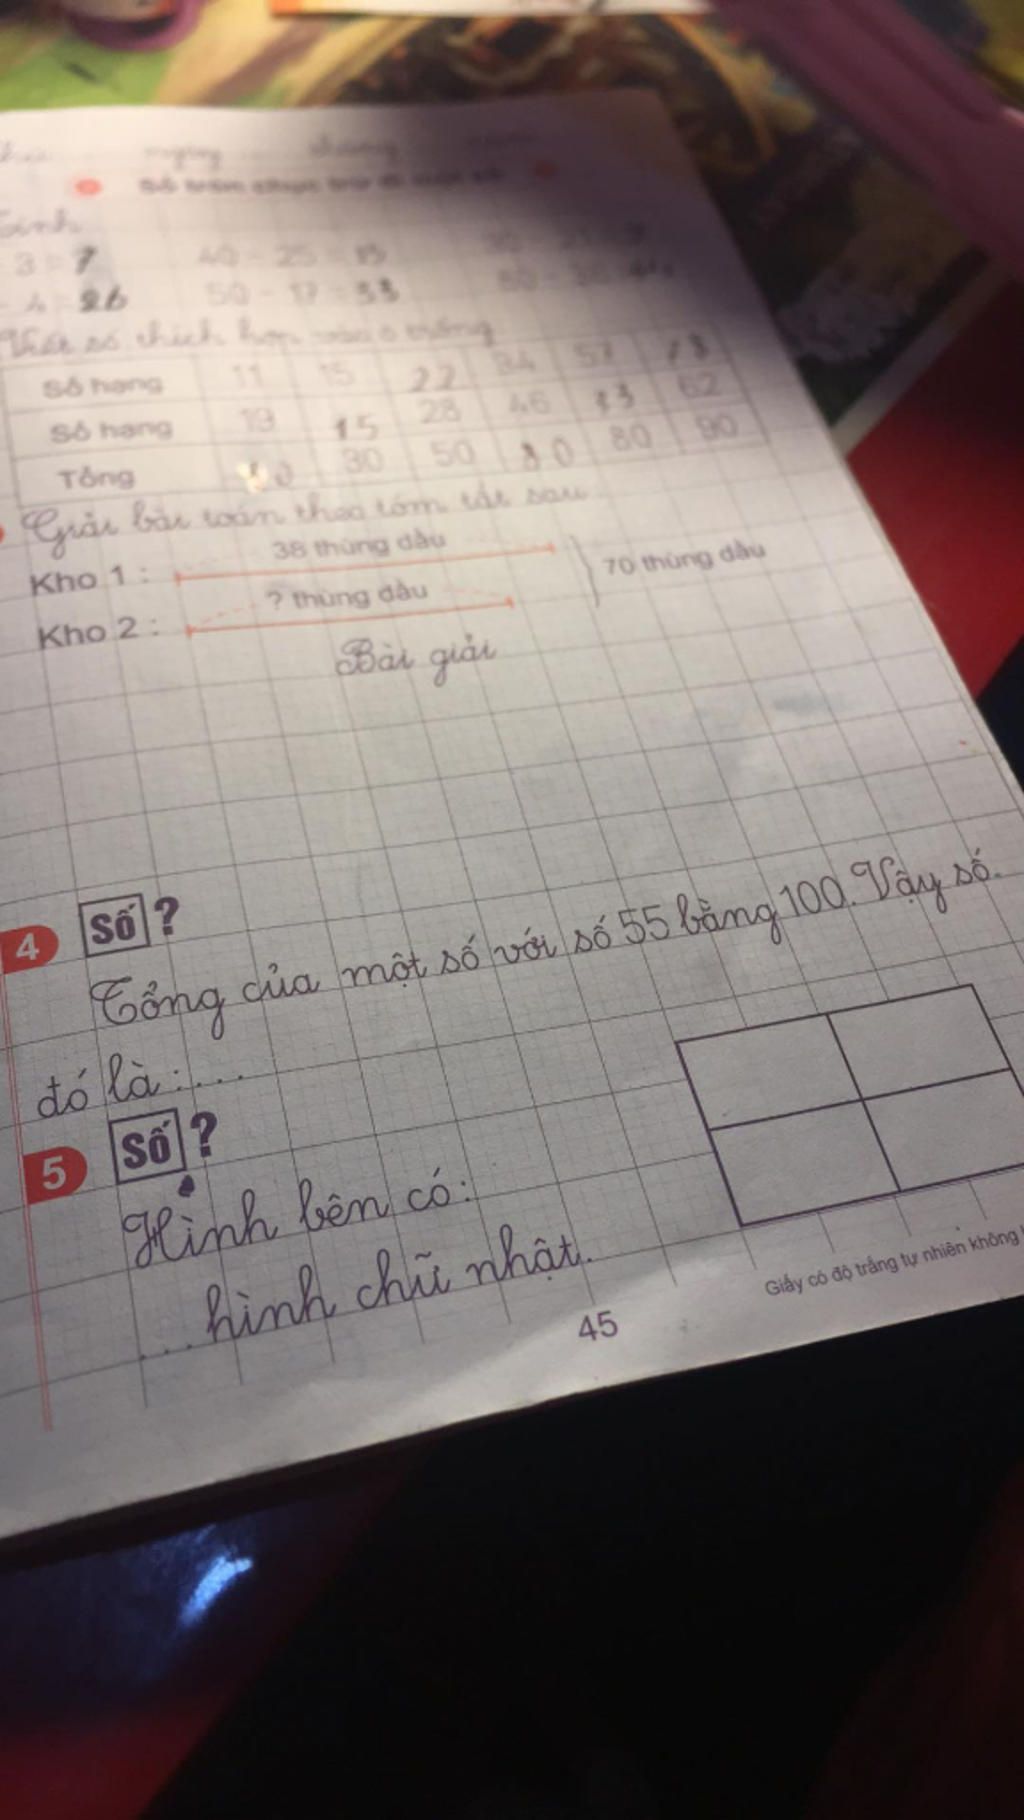 ngày tháng
Số tròn chục trừ đi một số
Tính
3 = 7 40 - 25 = 15
- 4 = 26 50 - 17 = 33
Viết số thích hợp vào ô trống
Số hạng 11 15 22 34 57
Số hạng 19 15 28 46 62
Tổng 30 50 80 80 90
Giải bài toán theo tóm tắt sau
38 thùng dầu
Kho 1 : 70 thùng dầu
? thùng dầu
Kho 2 :
Bài giải
4 Số ?
Tổng của một số với số 55 bằng 100. Vậy số
đó là :....
5 Số ?
Hình bên có:
... hình chữ nhật.
Giấy có độ trắng tự nhiên không
45